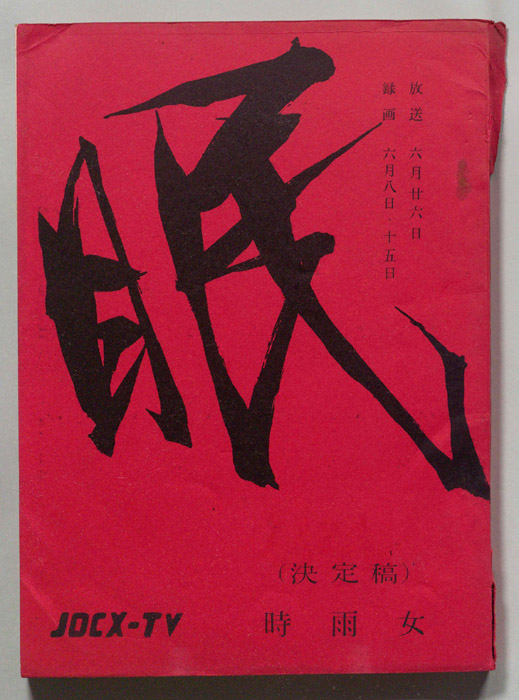 眠
放送 六月廿六日
録画 六月八日・十五日
（決定稿）
時雨女
JOCX-TV